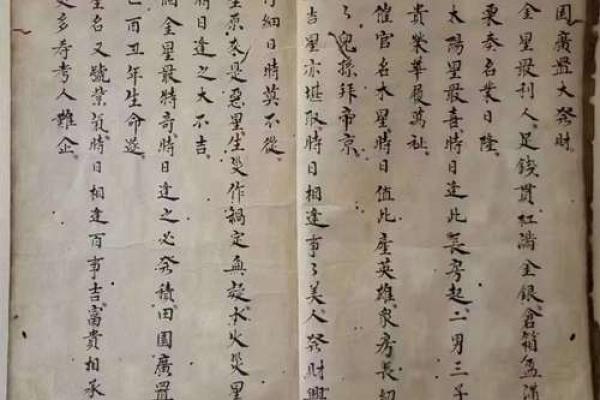 園廣置大發財
金星最利人足錢貫紅滿金銀倉箱盈滿
粟奈名業日隆
太陽星最喜時日逢此長房起二男三子
貴榮華履萬祉
催官名水星時日值此產英雄衆房長幼
々兒孫拜帝京
吉星亦堪取時日相逢事々美人發財興
行細日時莫不從
星原來是惡星生災作禍定無疑水火災星
時日逢之大不吉
個金星最特奇時日逢之必發積田園廣置
己酉丑年生命遂
星名又號紫氣時日相逢百事吉富貴相承
又多寿考人難企